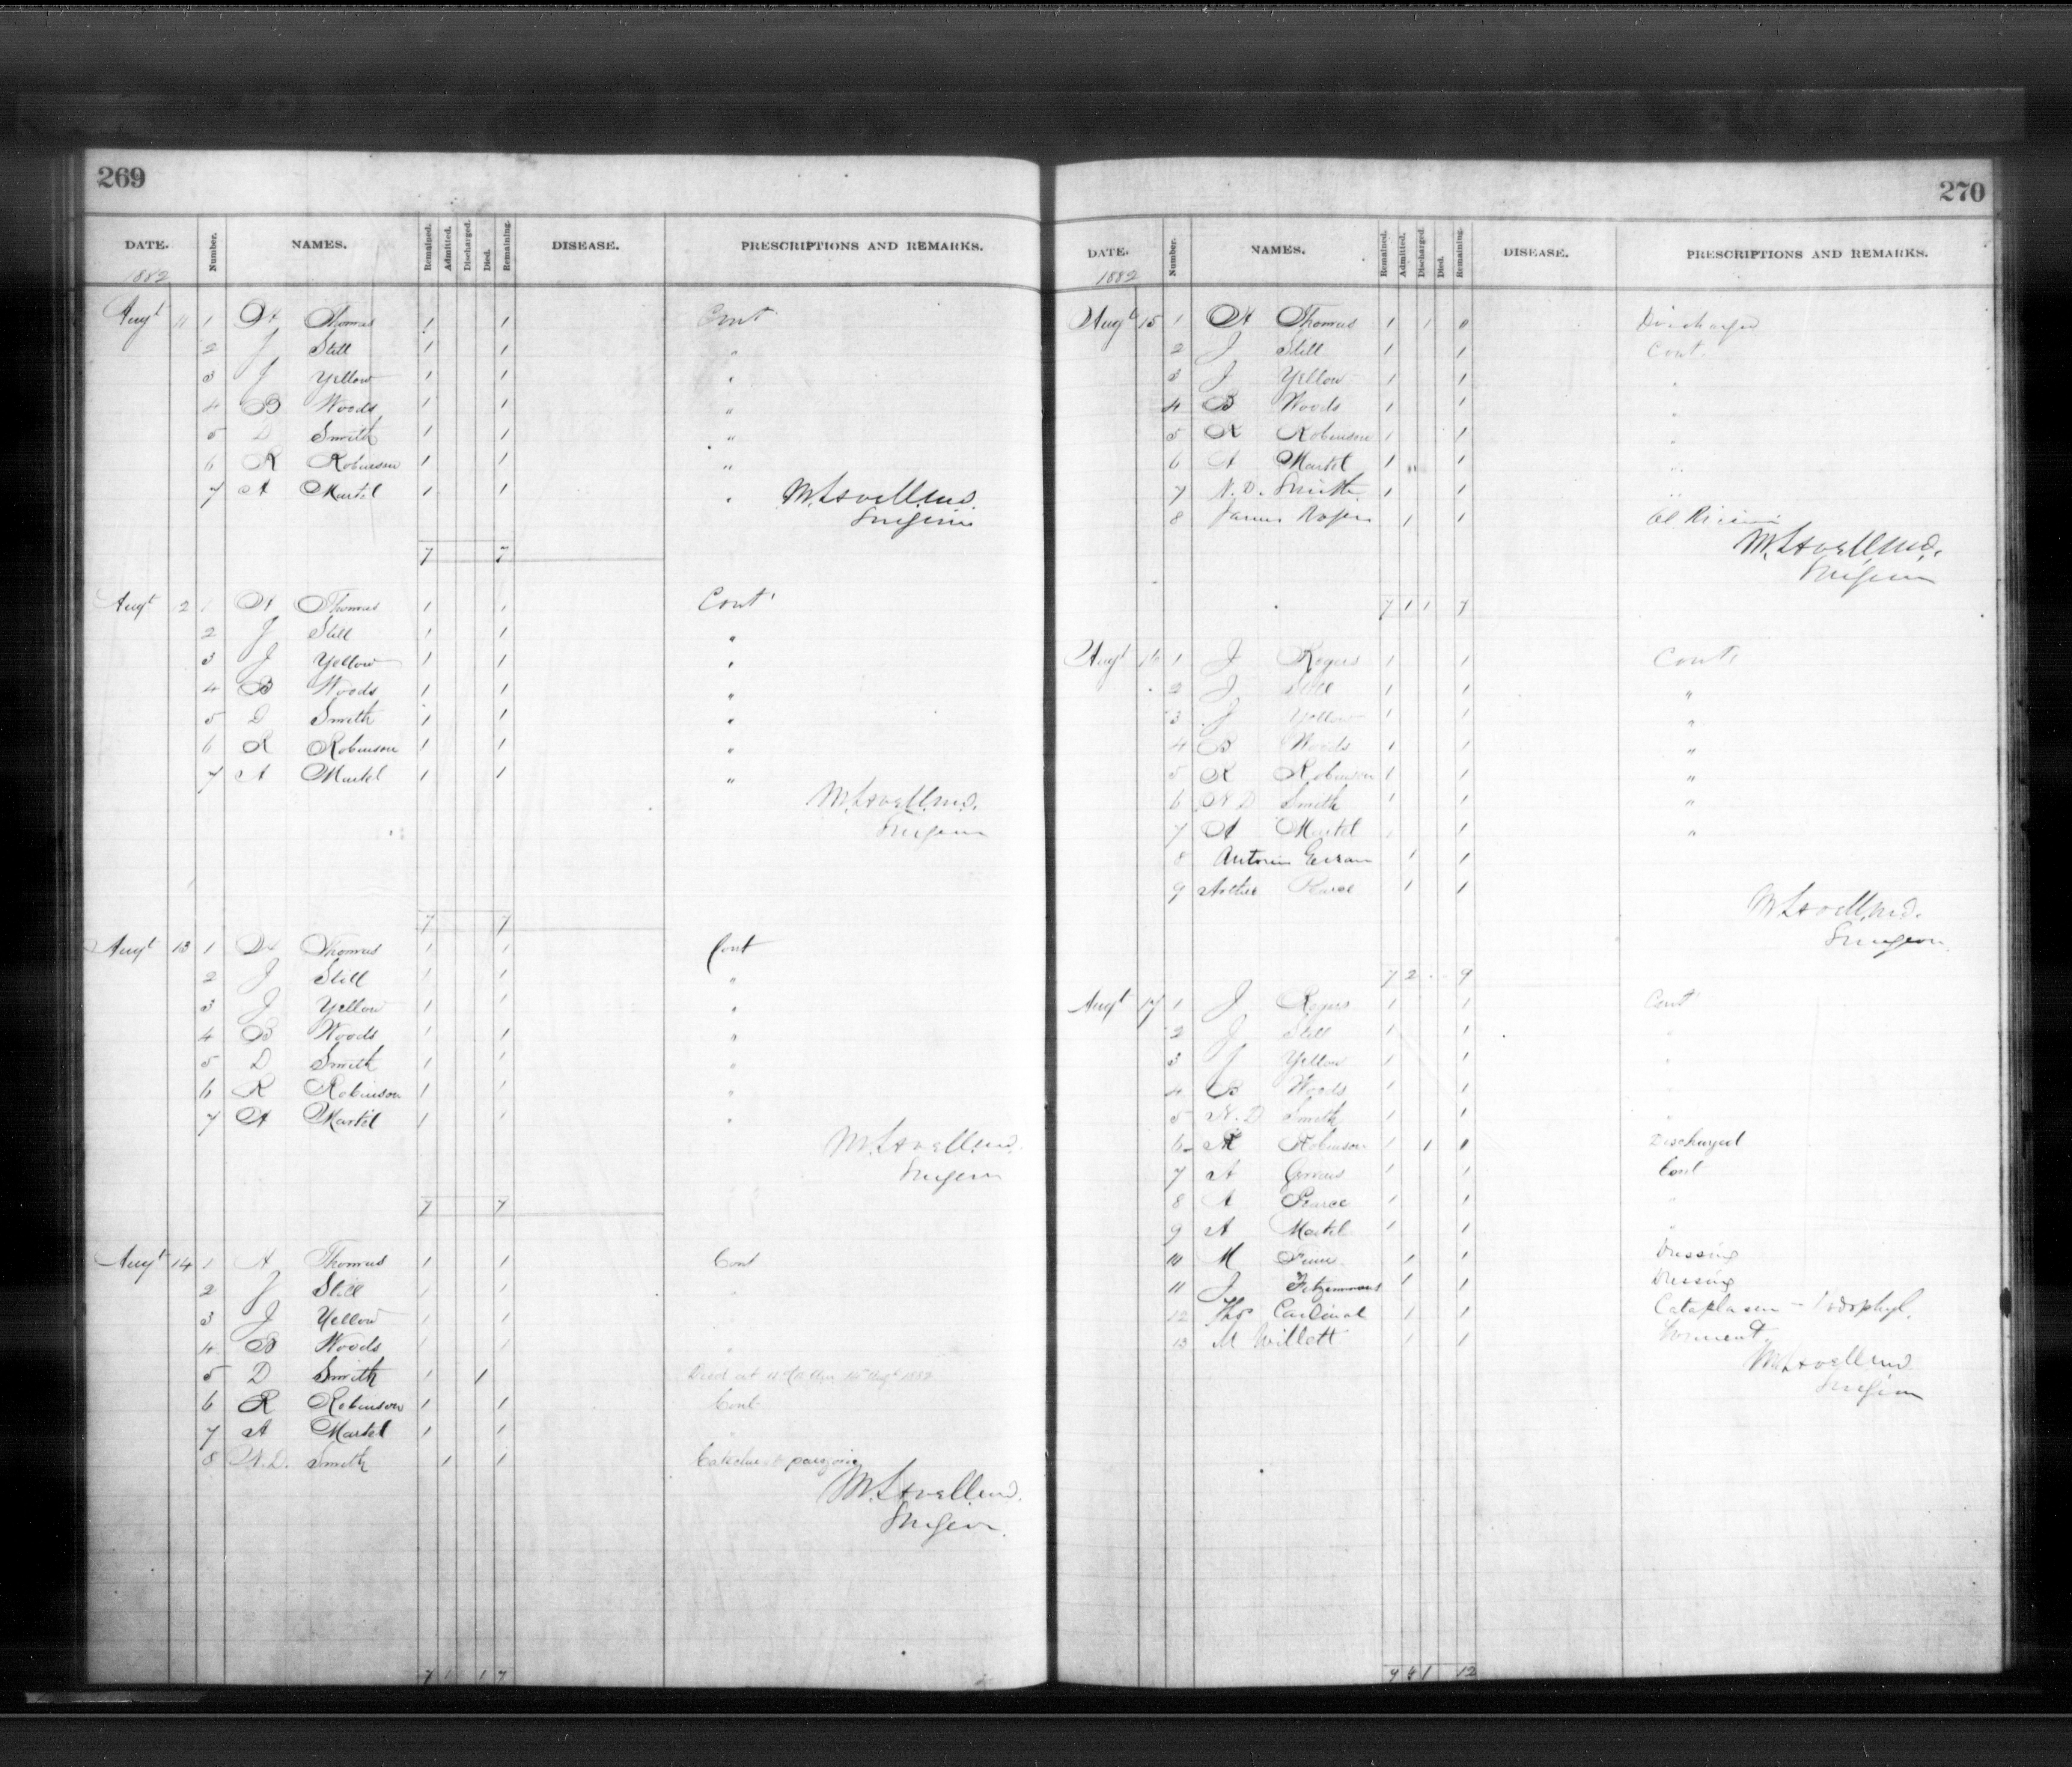 269
DATE. Number. NAMES. Remained. Admitted. Discharged. Died. Remaining. DISEASE. PRESCRIPTIONS AND REMARKS.
1882
Augt 11 1 A Thomas 1 1 Cont
2 J Still 1 1 "
3 J Yellow 1 1 "
4 B Woods 1 1 "
5 D Smith 1 1 "
6 R Robinson 1 1 "
7 A Martel 1 1 "
Surgeon
7 7
Augt 12 1 A Thomas 1 1 Cont
2 J Still 1 1 "
3 J Yellow 1 1 "
4 B Woods 1 1 "
5 D Smith 1 1 "
6 R Robinson 1 1 "
7 A Martel 1 1 "
Surgeon
7 7
Augt 13 1 A Thomas 1 1 Cont
2 J Still 1 1 "
3 J Yellow 1 1 "
4 B Woods 1 1 "
5 D Smith 1 1 "
6 R Robinson 1 1 "
7 A Martel 1 1 "
Surgeon
7 7
Augt 14 1 A Thomas 1 1 Cont
2 J Still 1 1 "
3 J Yellow 1 1 "
4 B Woods 1 1 "
5 D Smith 1 1 Died at Augt 1882
6 R Robinson 1 1 Cont
7 A Martel 1 1 "
8 N.D. Smith 1 1
Surgeon.
7 1 1 7
270
DATE. Number. NAMES. Remained. Admitted. Discharged. Died. Remaining. DISEASE. PRESCRIPTIONS AND REMARKS.
1882
Augt 15 1 A Thomas 1 1 0 Discharged
2 J Still 1 1 Cont.
3 J Yellow 1 1 "
4 B Woods 1 1 "
5 R Robinson 1 1 "
6 A Martel 1 1 "
7 N.D. Smith 1 1 "
8 James Rogers 1 1 Ol Ricini
Surgeon
7 1 1 7
Augt 16 1 J Rogers 1 1 Cont
2 J Still 1 1 "
3 J Yellow 1 1 "
4 B Woods 1 1 "
5 R Robinson 1 1 "
6 N D Smith 1 1 "
7 A Martel 1 1 "
8 1 1
9 Arthur Pearce 1 1
Surgeon.
7 2 9
Augt 17 1 J Rogers 1 1 Cont
2 J Still 1 1 "
3 J Yellow 1 1 "
4 B Woods 1 1 "
5 N.D Smith 1 1 "
6 R Robinson 1 1 0 Discharged
7 A 1 1 Cont
8 A Pearce 1 1 "
9 A Martel 1 1 "
10 M 1 1 Dressing
11 J Fitzsimmons 1 1 Dressing
12 Thos Cardinal 1 1 Cataplasm - Podophyl.
13 M Willett 1 1 Liniment
Surgeon
9 4 1 12